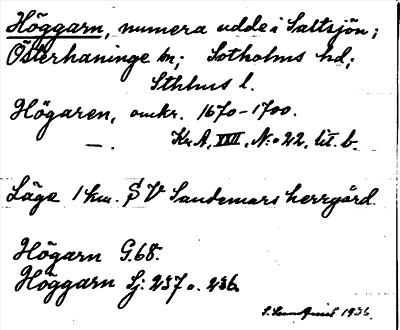 Höggarn, numera udde i Saltsjön;
Österhaninge sn; Sotholms hd;
Sthlms l.
Högaren, omkr. 1670-1700.
—. Kr.A, XXII, N:o 22, lit b.
Läge 1 km. S V Sandemars herrgård.
Högarn G.68.
Höggarn Lj: 237 o. 236.
1936.